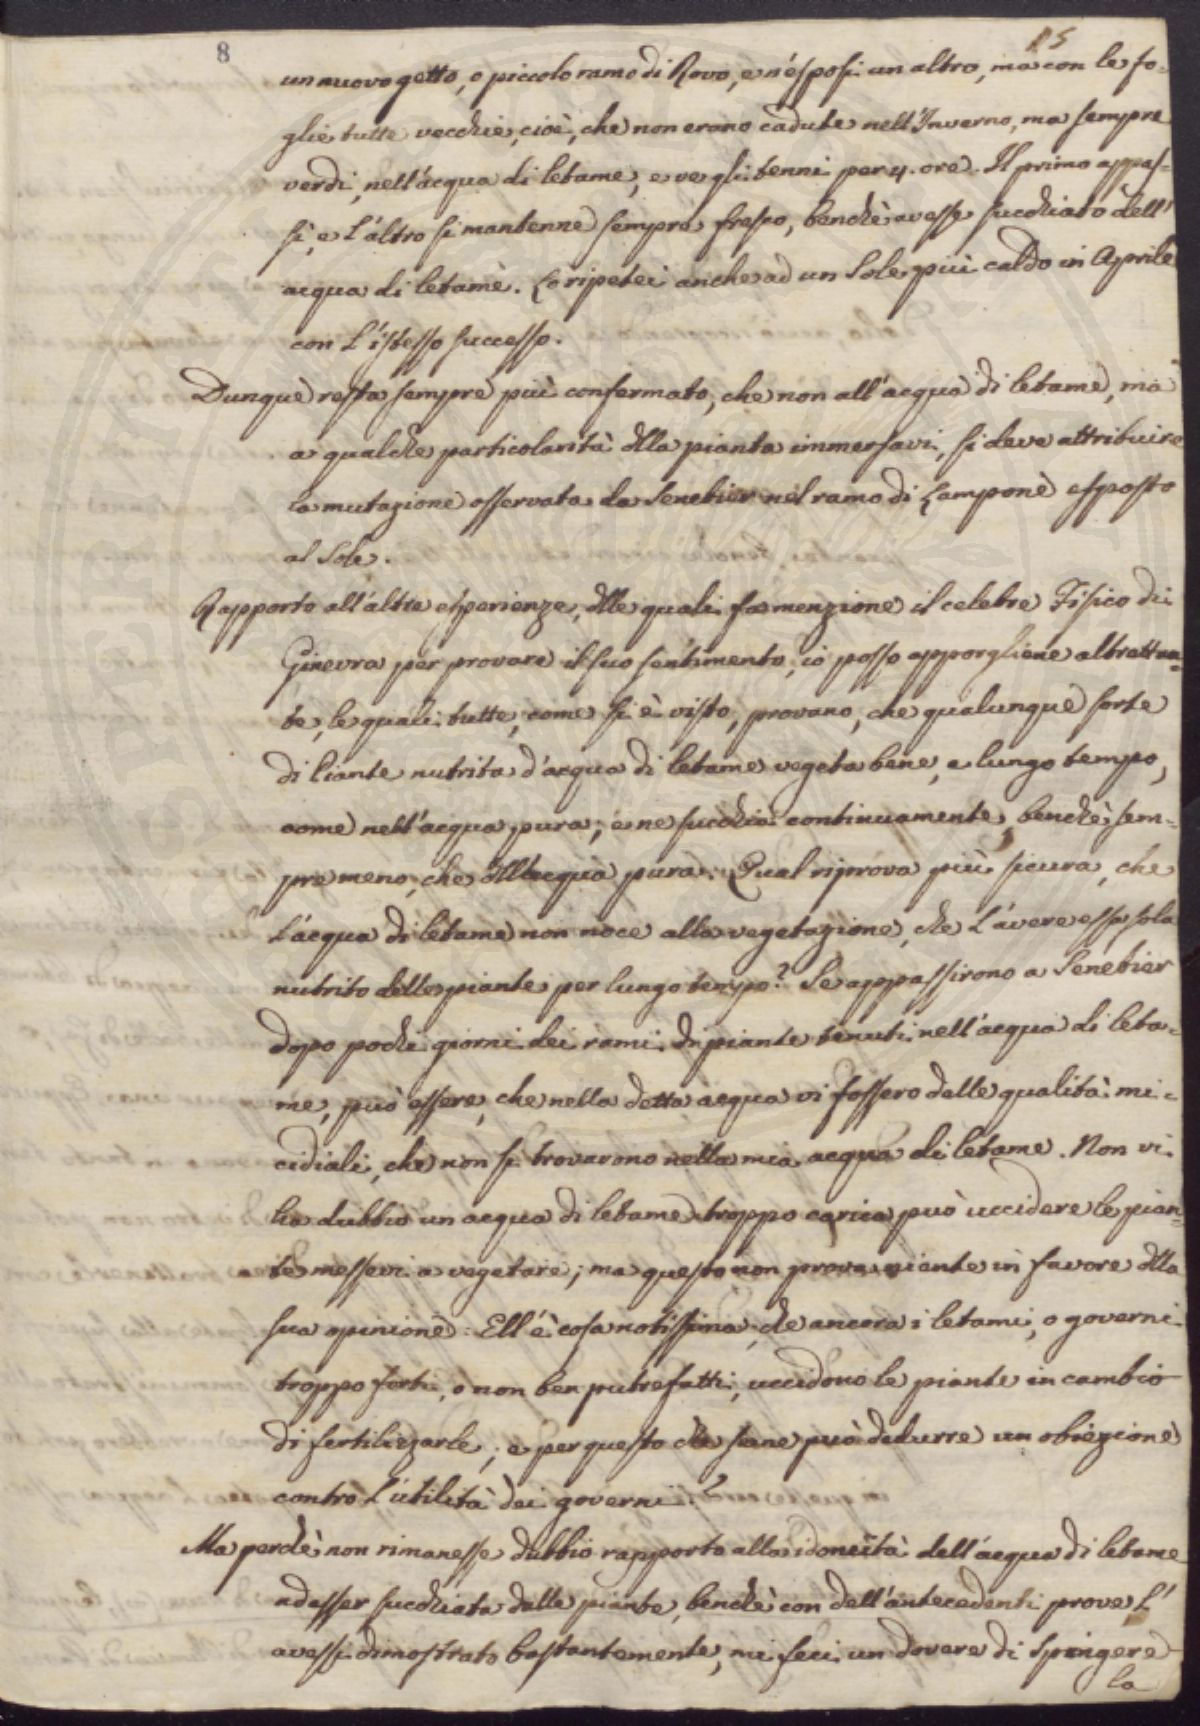 8
15
un nuovo getto, o piccolo ramo di Rovo, e n'esposi un altro, ma con le fo-
glie tutte vecchie, cioè, che non erano cadute nell'Inverno, ma sempre
verdi, nell'acqua di letame, e ve gli tenni per 4. ore. Il primo appas-
sì, e l'altro si mantenne sempre fresco, benchè avesse succhiato dell'
acqua di letame. Lo ripetei anche ad un Sole più caldo in Aprile
con l'istesso successo.
Dunque resta sempre più confermato, che non all'acqua di letame, ma
a qualche particolarità dlla pianta immersavi, si deve attribuire
la mutazione osservata da Senebier nel ramo di Lampone esposto
al Sole.
Rapporto all'altre esperienze, dlle quali fa menzione il celebre Fisico di
Ginevra per provare il suo sentimento, io posso apporgliene altrettan-
te, le quali tutte, come si è visto, provano, che qualunque sorte
di piante nutrita d'acqua di letame vegeta bene, e lungo tempo,
come nell'acqua pura; e ne succhia continuamente, benchè sem-
pre meno, che dll'acqua pura. Qual riprova più sicura, che
l'acqua di letame non noce alla vegetazione, che l'avere essa sola
nutrito delle piante per lungo tempo? Se appassirono a Senebier
dopo pochi giorni dei rami di piante tenuti nell'acqua di leta-
me, può essere, che nella detta acqua vi fossero delle qualità mi-
cidiali, che non si trovarono nella mia acqua di letame. Non vi
ha dubbio un acqua di letame troppo carica può uccidere le pian-
te messevi a vegetare; ma questo non prova niente in favore dlla
sua opinione. Ell'è cosa notissima, che ancora i letami, o governi
troppo forti, o non ben putrefatti, uccidono le piante in cambio
di fertilizzarle; e per questo che se ne può dedurre un obiezione
contro l'utilità dei governi?
Ma perchè non rimanesse dubbio rapporto alla idoneità dell'acqua di letame
ad esser succhiata dalle piante, benchè con dell'antecedenti prove l'
avessi dimostrato bastantemente, mi feci un dovere di spingere
la